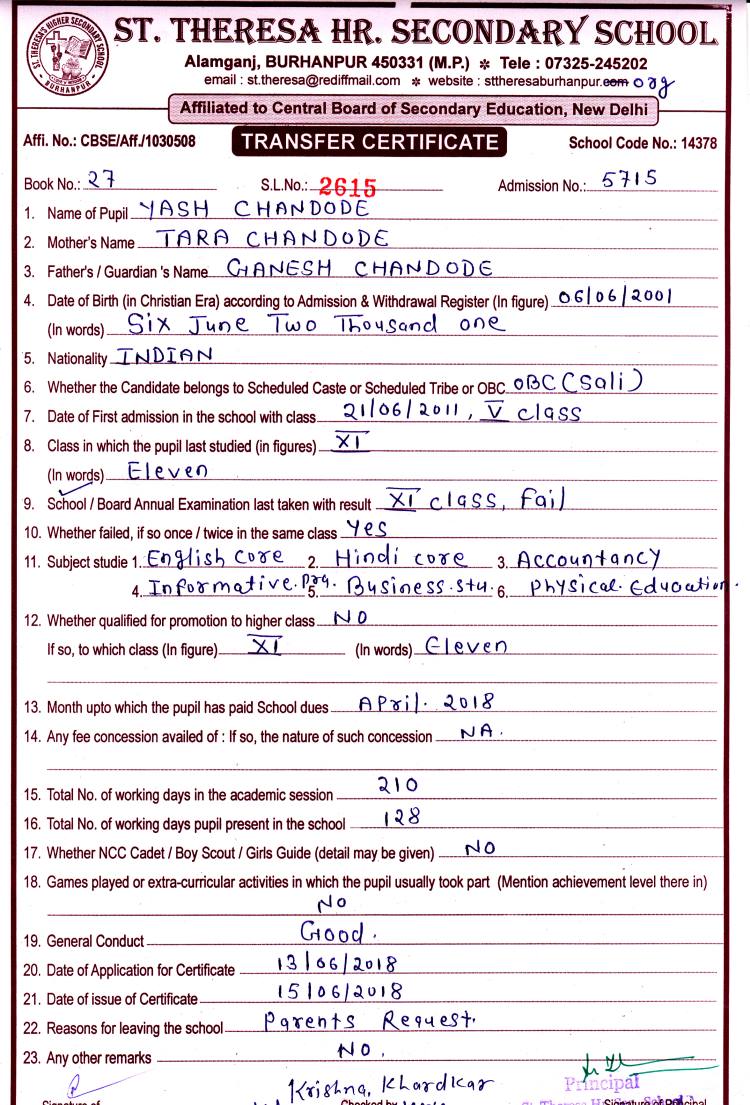 ST. THERESA'S HIGHER SECONDARY SCHOOL
BURHANPUR
ST. THERESA HR. SECONDARY SCHOOL
Alamganj, BURHANPUR 450331 (M.P.) * Tele : 07325-245202
email : st.theresa@rediffmail.com * website : sttheresaburhanpur.com org
Affiliated to Central Board of Secondary Education, New Delhi
Affi. No.: CBSE/Aff./1030508 TRANSFER CERTIFICATE School Code No.: 14378
Book No.: 27 S.L.No.: 2615 Admission No.: 5715
1. Name of Pupil YASH CHANDODE
2. Mother's Name TARA CHANDODE
3. Father's / Guardian 's Name GANESH CHANDODE
4. Date of Birth (in Christian Era) according to Admission & Withdrawal Register (In figure) 06/06/2001
(In words) Six June Two Thousand one
5. Nationality INDIAN
6. Whether the Candidate belongs to Scheduled Caste or Scheduled Tribe or OBC OBC (Sali)
7. Date of First admission in the school with class 21/06/2011, V class
8. Class in which the pupil last studied (in figures) XI
(In words) Eleven
9. School / Board Annual Examination last taken with result XI class, Fail
10. Whether failed, if so once / twice in the same class Yes
11. Subject studie 1. English core 2. Hindi core 3. Accountancy
4. Informative.Prq. 5. Business.stu. 6. Physical Education.
12. Whether qualified for promotion to higher class NO
If so, to which class (In figure) XI (In words) Eleven
13. Month upto which the pupil has paid School dues April. 2018
14. Any fee concession availed of : If so, the nature of such concession NA.
15. Total No. of working days in the academic session 210
16. Total No. of working days pupil present in the school 128
17. Whether NCC Cadet / Boy Scout / Girls Guide (detail may be given) NO
18. Games played or extra-curricular activities in which the pupil usually took part (Mention achievement level there in)
No
19. General Conduct Good.
20. Date of Application for Certificate 13/06/2018
21. Date of issue of Certificate 15/06/2018
22. Reasons for leaving the school Parents Request.
23. Any other remarks NO.
Krishna, Khardkar
Principal
Signature of Checked by Signature of Principal